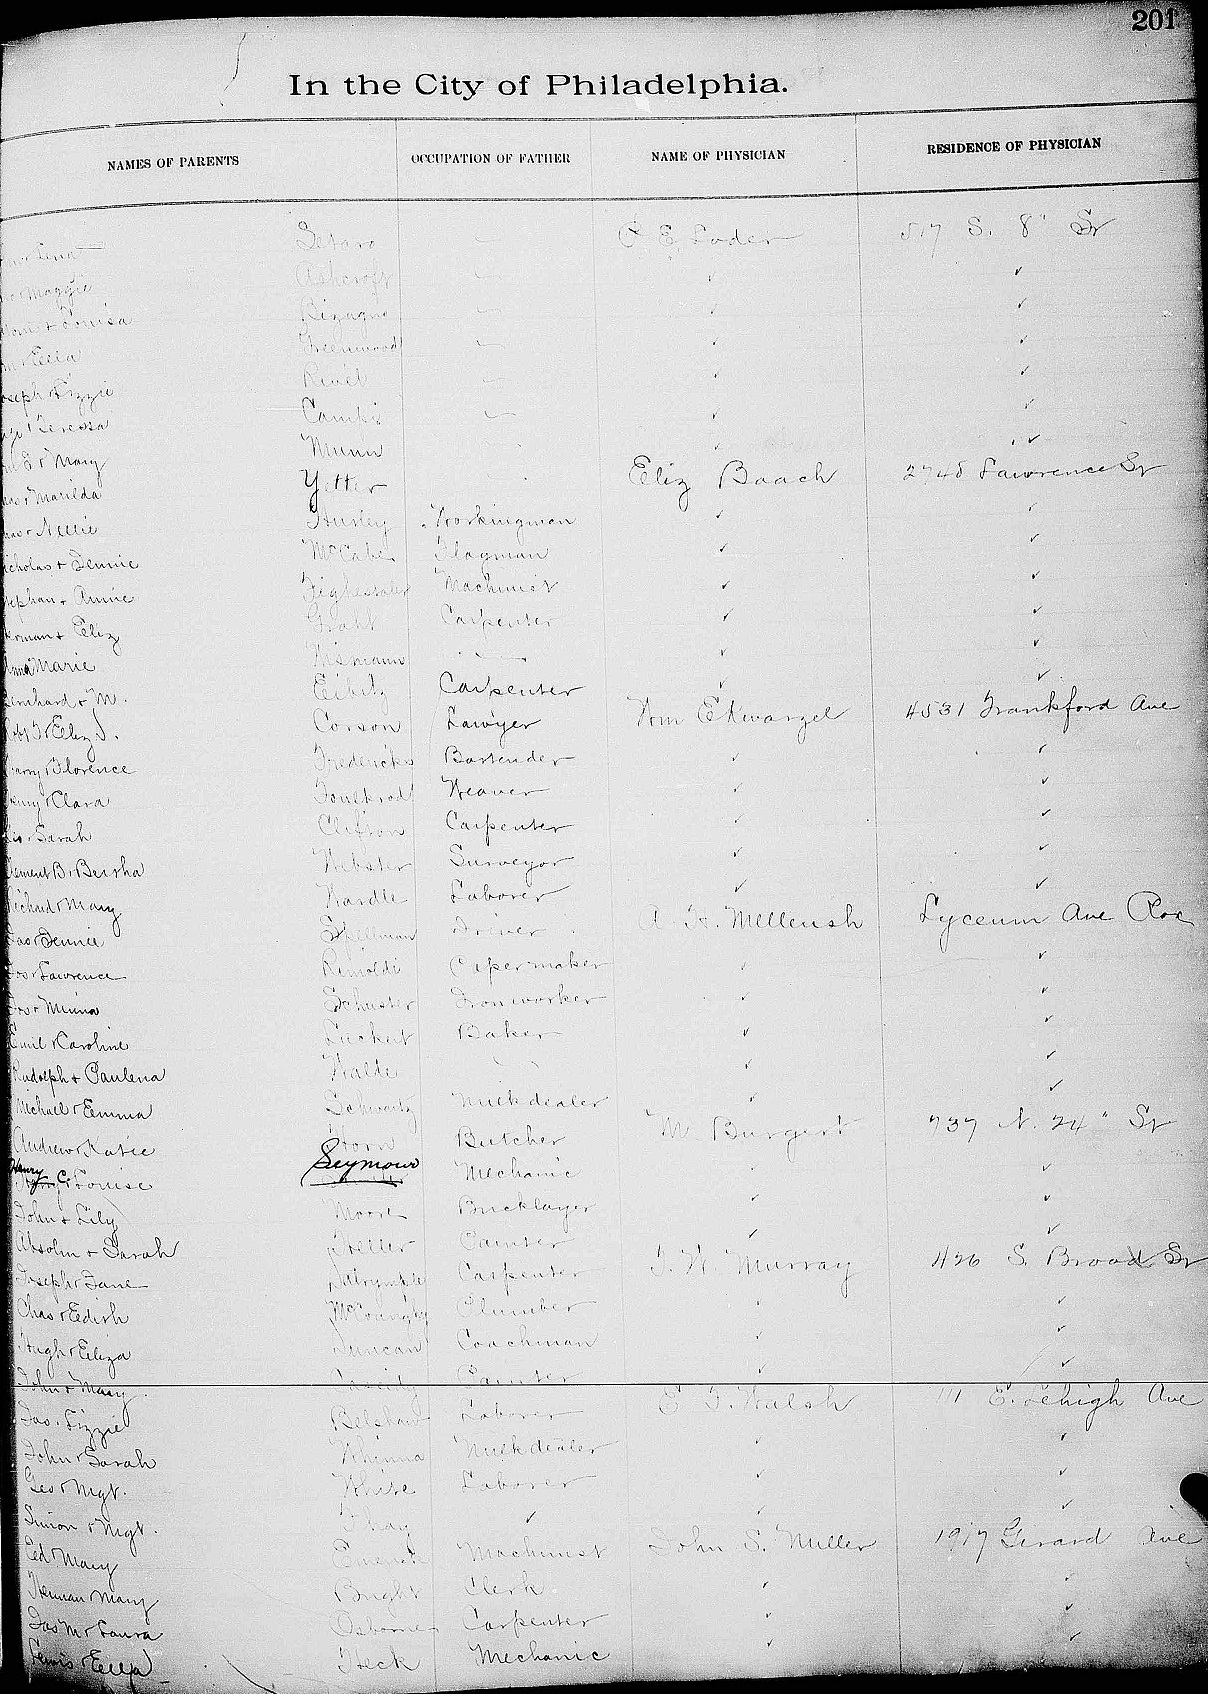 201
In the City of Philadelphia.
NAMES OF PARENTS OCCUPATION OF FATHER NAME OF PHYSICIAN RESIDENCE OF PHYSICIAN
Lena Setaro P. E. Loder 517 S. 8" St
Maggie Ashcroft ✓ ✓
& Louisa Bizagno ✓ ✓
Ella Greenwood ✓ ✓
Joseph & Lizzie ✓ ✓
Teressa ✓ ✓
& Mary Munn ✓ ✓
& Matilda Yetter Eliz Baach 2748 Lawrence St
& Nellie Hurley Workingman ✓ ✓
Nicholas & Jennie McCabe Flagman ✓ ✓
Stephan & Annie Machinist ✓ ✓
Herman & Eliz Carpenter ✓ ✓
Anna Marie ✓ ✓
Bernhard & M. Eibitz Carpenter ✓ ✓
Robt J & Eliz J. Corson Lawyer Wm E Kwarzel 4531 Frankford Ave
Harry & Florence Fredericks Bartender ✓ ✓
& Clara Foulkrod Weaver ✓ ✓
& Sarah Clifton Carpenter ✓ ✓
Clement B & Bertha Webster Surveyor ✓ ✓
Richard & Mary Wardle Laborer ✓ ✓
Jas & Jennie Spellman Driver A. H. Mellersh Lyceum Ave Rox
Jos & Lawrence Rinoldi Papermaker ✓ ✓
Jos & Minna Schuster Ironworker ✓ ✓
Emil & Caroline Baker ✓ ✓
Rudolph & Paulena Walde ✓ ✓
Michael & Emma Schwartz Milkdealer ✓ ✓
Andrew & Katie Horn Butcher M Burgert 737 N. 24" St
Henry C. & Louise Seymour Mechanic ✓
John & Lily Moore Bricklayer ✓ ✓
Absolm & Sarah Heller Painter ✓ ✓
Joseph & Jane Dalrymple Carpenter T. W. Murray 426 S. Broad St
Chas & Edith Plumber ✓ ✓
Hugh & Eliza Duncan Coachman ✓ ✓
John & Mary Cassidy Painter ✓ ✓
Jas. Lizzie Belshaw Laborer E J. Walsh 111 E. Lehigh Ave
John & Sarah Whinna Milkdealer ✓ ✓
Geo & Mgt. White Laborer ✓ ✓
Simon & Mgt. ✓ ✓ ✓
Ed & Mary Machinist John S. Miller 1917 Gerard Ave
Herman Mary Bright Clerk ✓ ✓
Jas M & Laura Osborne Carpenter ✓ ✓
Lewis & Ella Heck Mechanic ✓ ✓